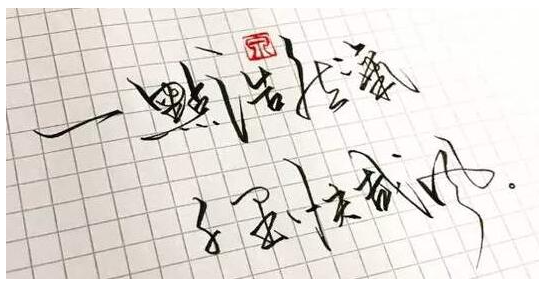 一點浩然氣
千里快哉風.